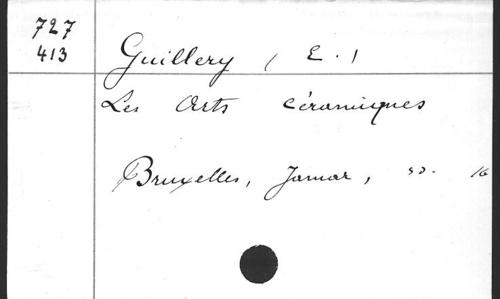 727
413
Guillery (E.)
Les Arts céramiques
Bruxelles, Jamar, sd. 16